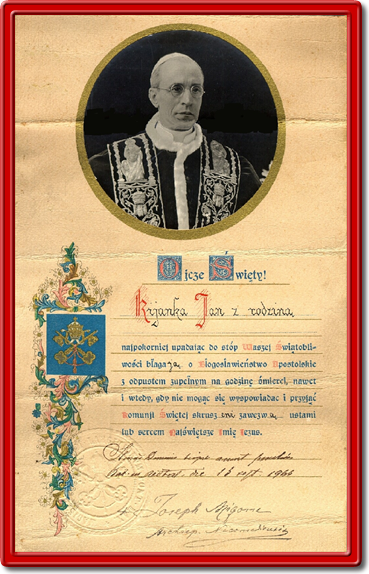 Ojcze Święty!
Kijanka Jan z rodziną
najpokorniej upadając do stóp Waszej Świątobli-
wości błaga ją o Błogosławieństwo Apostolskie
z odpustem zupełnym na godzinę śmierci, nawet
i wtedy, gdy nie mogąc się wyspowiadać i przyjąć
Komunii Świętej skrusz eni zawezwą ustami
lub sercem Najświętsze Imię Jezus.
die 18
Joseph Migone
Archiep. Nicomediensis